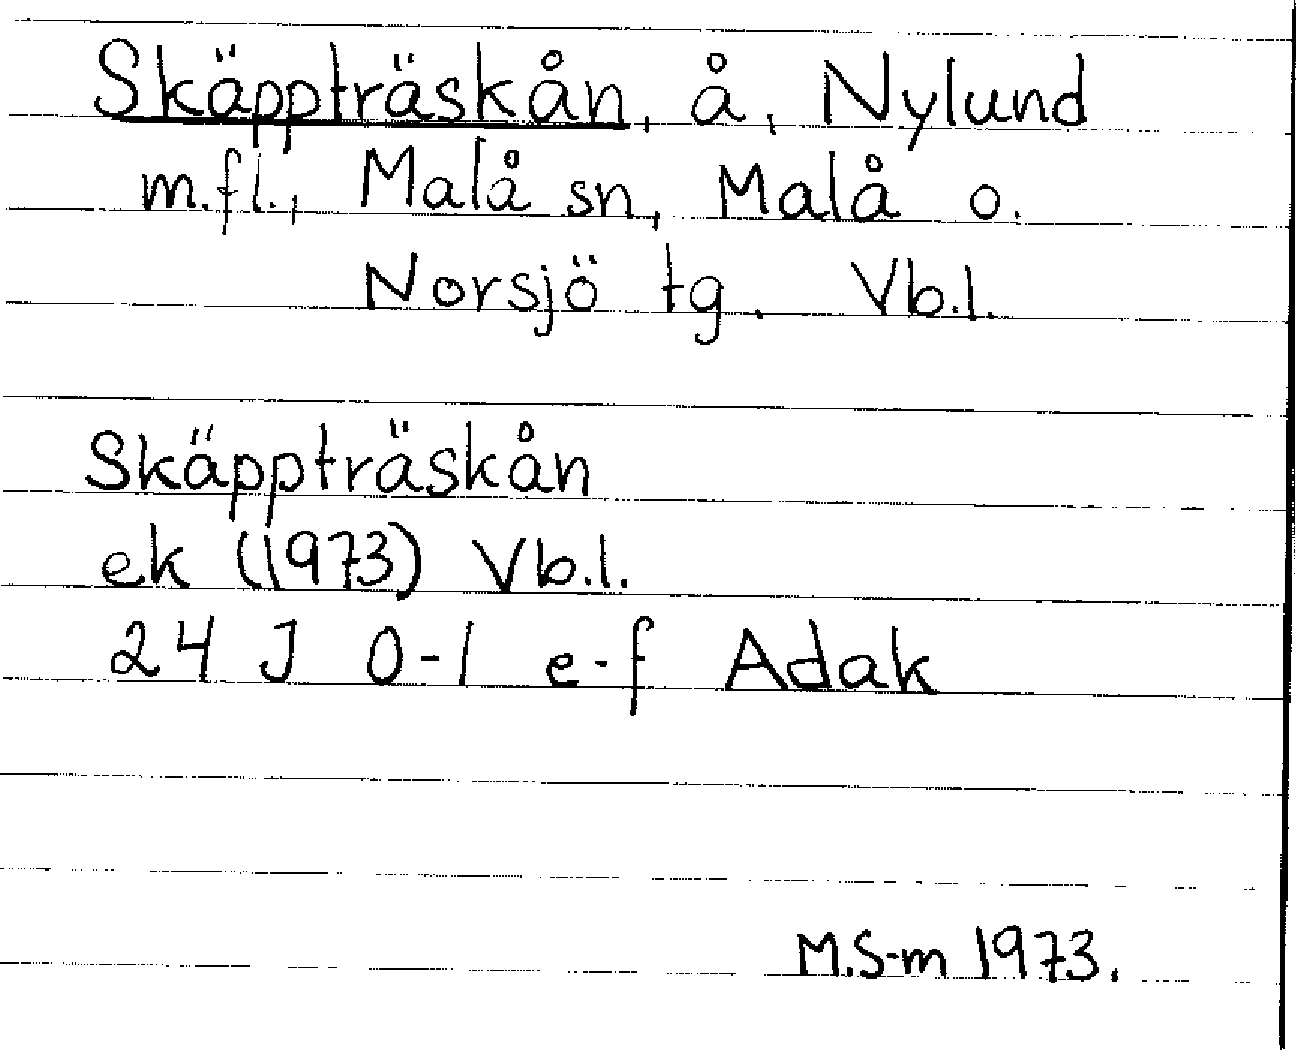 Skäppträskån, å, Nylund
m.fl., Malå sn, Malå o.
Norsjö tg. Vb.l.
Skäppträskån
ek (1973) Vb.l.
24 J 0-1 e-f Adak
M.S-m 1973.